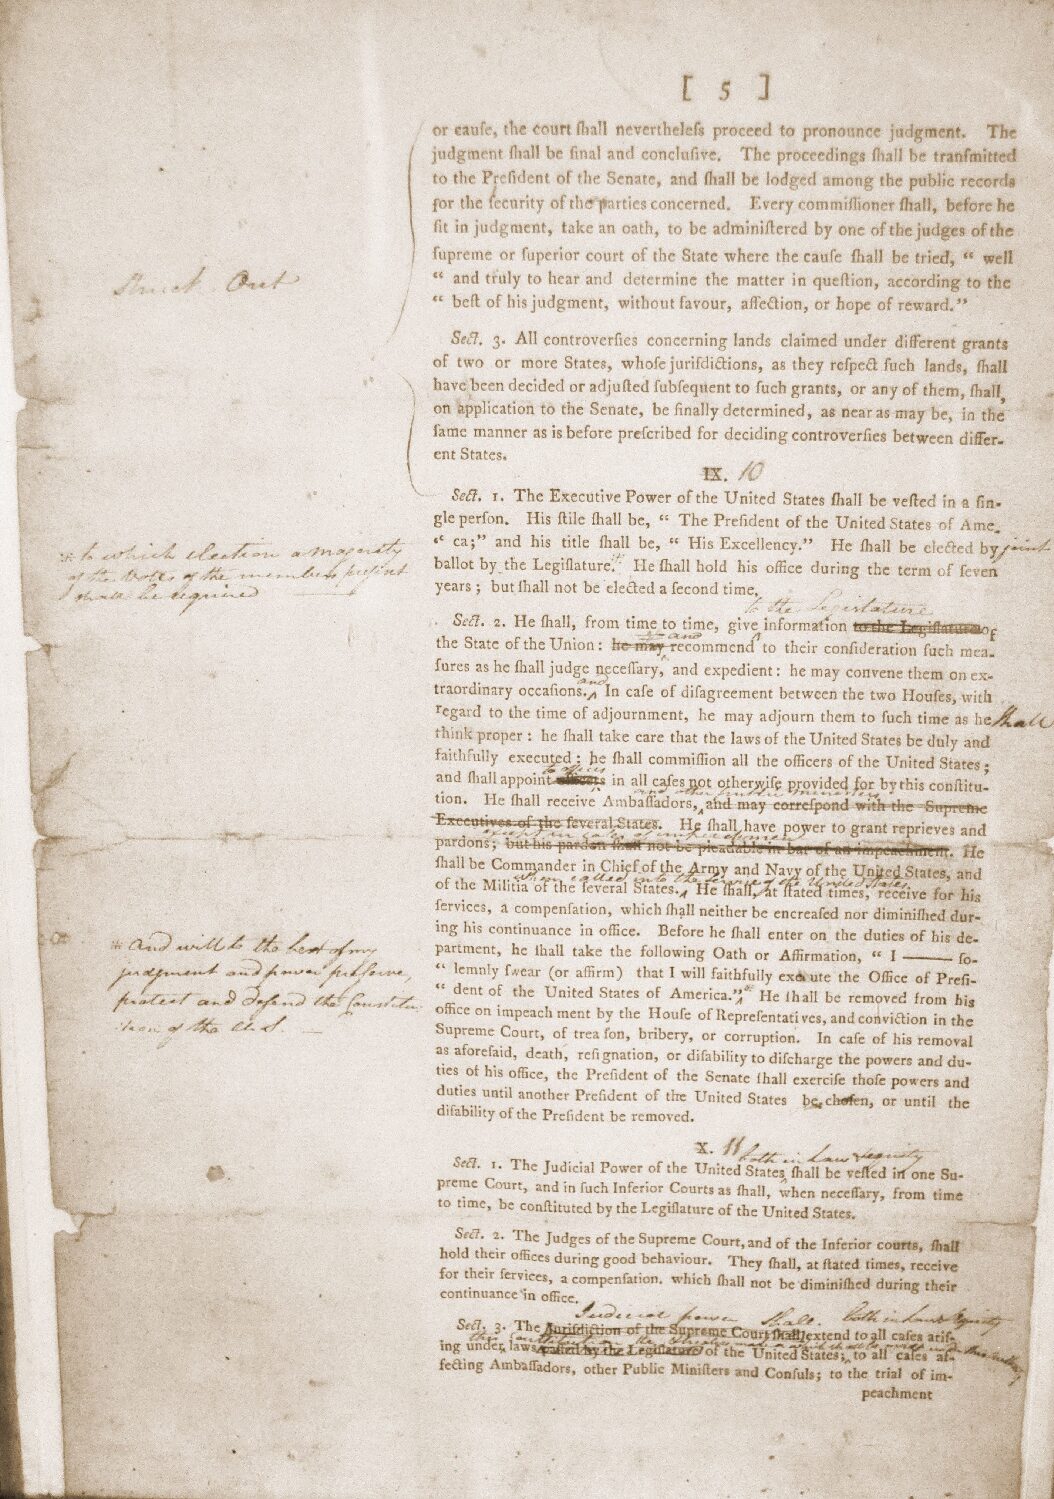 [ 5 ]
or cauſe, the court ſhall nevertheleſs proceed to pronounce judgment. The
judgment ſhall be final and concluſive. The proceedings ſhall be tranſmitted
to the Preſident of the Senate, and ſhall be lodged among the public records
for the ſecurity of the parties concerned. Every commiſſioner ſhall, before he
ſit in judgment, take an oath, to be adminiſtered by one of the judges of the
ſupreme or ſuperior court of the State where the cauſe ſhall be tried, “ well
“ and truly to hear and determine the matter in queſtion, according to the
“ beſt of his judgment, without favour, affection, or hope of reward.”
Struck Out
Sect. 3. All controverſies concerning lands claimed under different grants
of two or more States, whoſe juriſdictions, as they reſpect ſuch lands, ſhall
have been decided or adjuſted ſubſequent to ſuch grants, or any of them, ſhall,
on application to the Senate, be finally determined, as near as may be, in the
ſame manner as is before preſcribed for deciding controverſies between differ-
ent States.
IX. 10
Sect. 1. The Executive Power of the United States ſhall be veſted in a ſin-
gle perſon. His ſtile ſhall be, “ The Preſident of the United States of Ame-
“ ca;” and his title ſhall be, “ His Excellency.” He ſhall be elected by joint
ballot by the Legiſlature.* He ſhall hold his office during the term of ſeven
years ; but ſhall not be elected a ſecond time.
* to which election a majority
of the Votes of the members present
shall be required
to the Legislature
Sect. 2. He ſhall, from time to time, give information to the Legiſlature of
and
the State of the Union : he may recommend to their conſideration ſuch mea-
ſures as he ſhall judge neceſſary, and expedient : he may convene them on ex-
and
traordinary occaſions. In caſe of diſagreement between the two Houſes, with
regard to the time of adjournment, he may adjourn them to ſuch time as he shall
think proper : he ſhall take care that the laws of the United States be duly and
faithfully executed : he ſhall commiſſion all the officers of the United States ;
to offices
and ſhall appoint officers in all caſes not otherwiſe provided for by this conſtitu-
and other public ministers
tion. He ſhall receive Ambaſſadors, and may correſpond with the Supreme
Executives of the ſeveral States. He ſhall have power to grant reprieves and
except in cases of impeachment
pardons ; but his pardon ſhall not be pleadable in bar of an impeachment. He
ſhall be Commander in Chief of the Army and Navy of the United States, and
when called into the service of the United States
of the Militia of the ſeveral States. He ſhall, at ſtated times, receive for his
ſervices, a compenſation, which ſhall neither be encreaſed nor diminiſhed dur-
ing his continuance in office. Before he ſhall enter on the duties of his de-
partment, he ſhall take the following Oath or Affirmation, “ I —— ſo-
“ lemnly ſwear (or affirm) that I will faithfully execute the Office of Preſi-
“ dent of the United States of America.”* He ſhall be removed from his
office on impeachment by the Houſe of Repreſentatives, and conviction in the
Supreme Court, of treaſon, bribery, or corruption. In caſe of his removal
as aforeſaid, death, reſignation, or diſability to diſcharge the powers and du-
ties of his office, the Preſident of the Senate ſhall exerciſe thoſe powers and
duties until another Preſident of the United States be choſen, or until the
diſability of the Preſident be removed.
* and will to the best of my
judgment and power preserve,
protect and defend the Constitu
tion of the U.S.
X. 11
both in Law & equity
Sect. 1. The Judicial Power of the United States, ſhall be veſted in one Su-
preme Court, and in ſuch Inferior Courts as ſhall, when neceſſary, from time
to time, be conſtituted by the Legiſlature of the United States.
Sect. 2. The Judges of the Supreme Court, and of the Inferior courts, ſhall
hold their offices during good behaviour. They ſhall, at ſtated times, receive
for their ſervices, a compenſation, which ſhall not be diminiſhed during their
continuance in office.
Judicial power shall both in Law & Equity
Sect. 3. The Juriſdiction of the Supreme Court ſhall extend to all caſes ariſ-
this Constitution the
ing under laws paſſed by the Legiſlature of the United States; to all caſes af-
fecting Ambaſſadors, other Public Miniſters and Conſuls; to the trial of im-
peachment